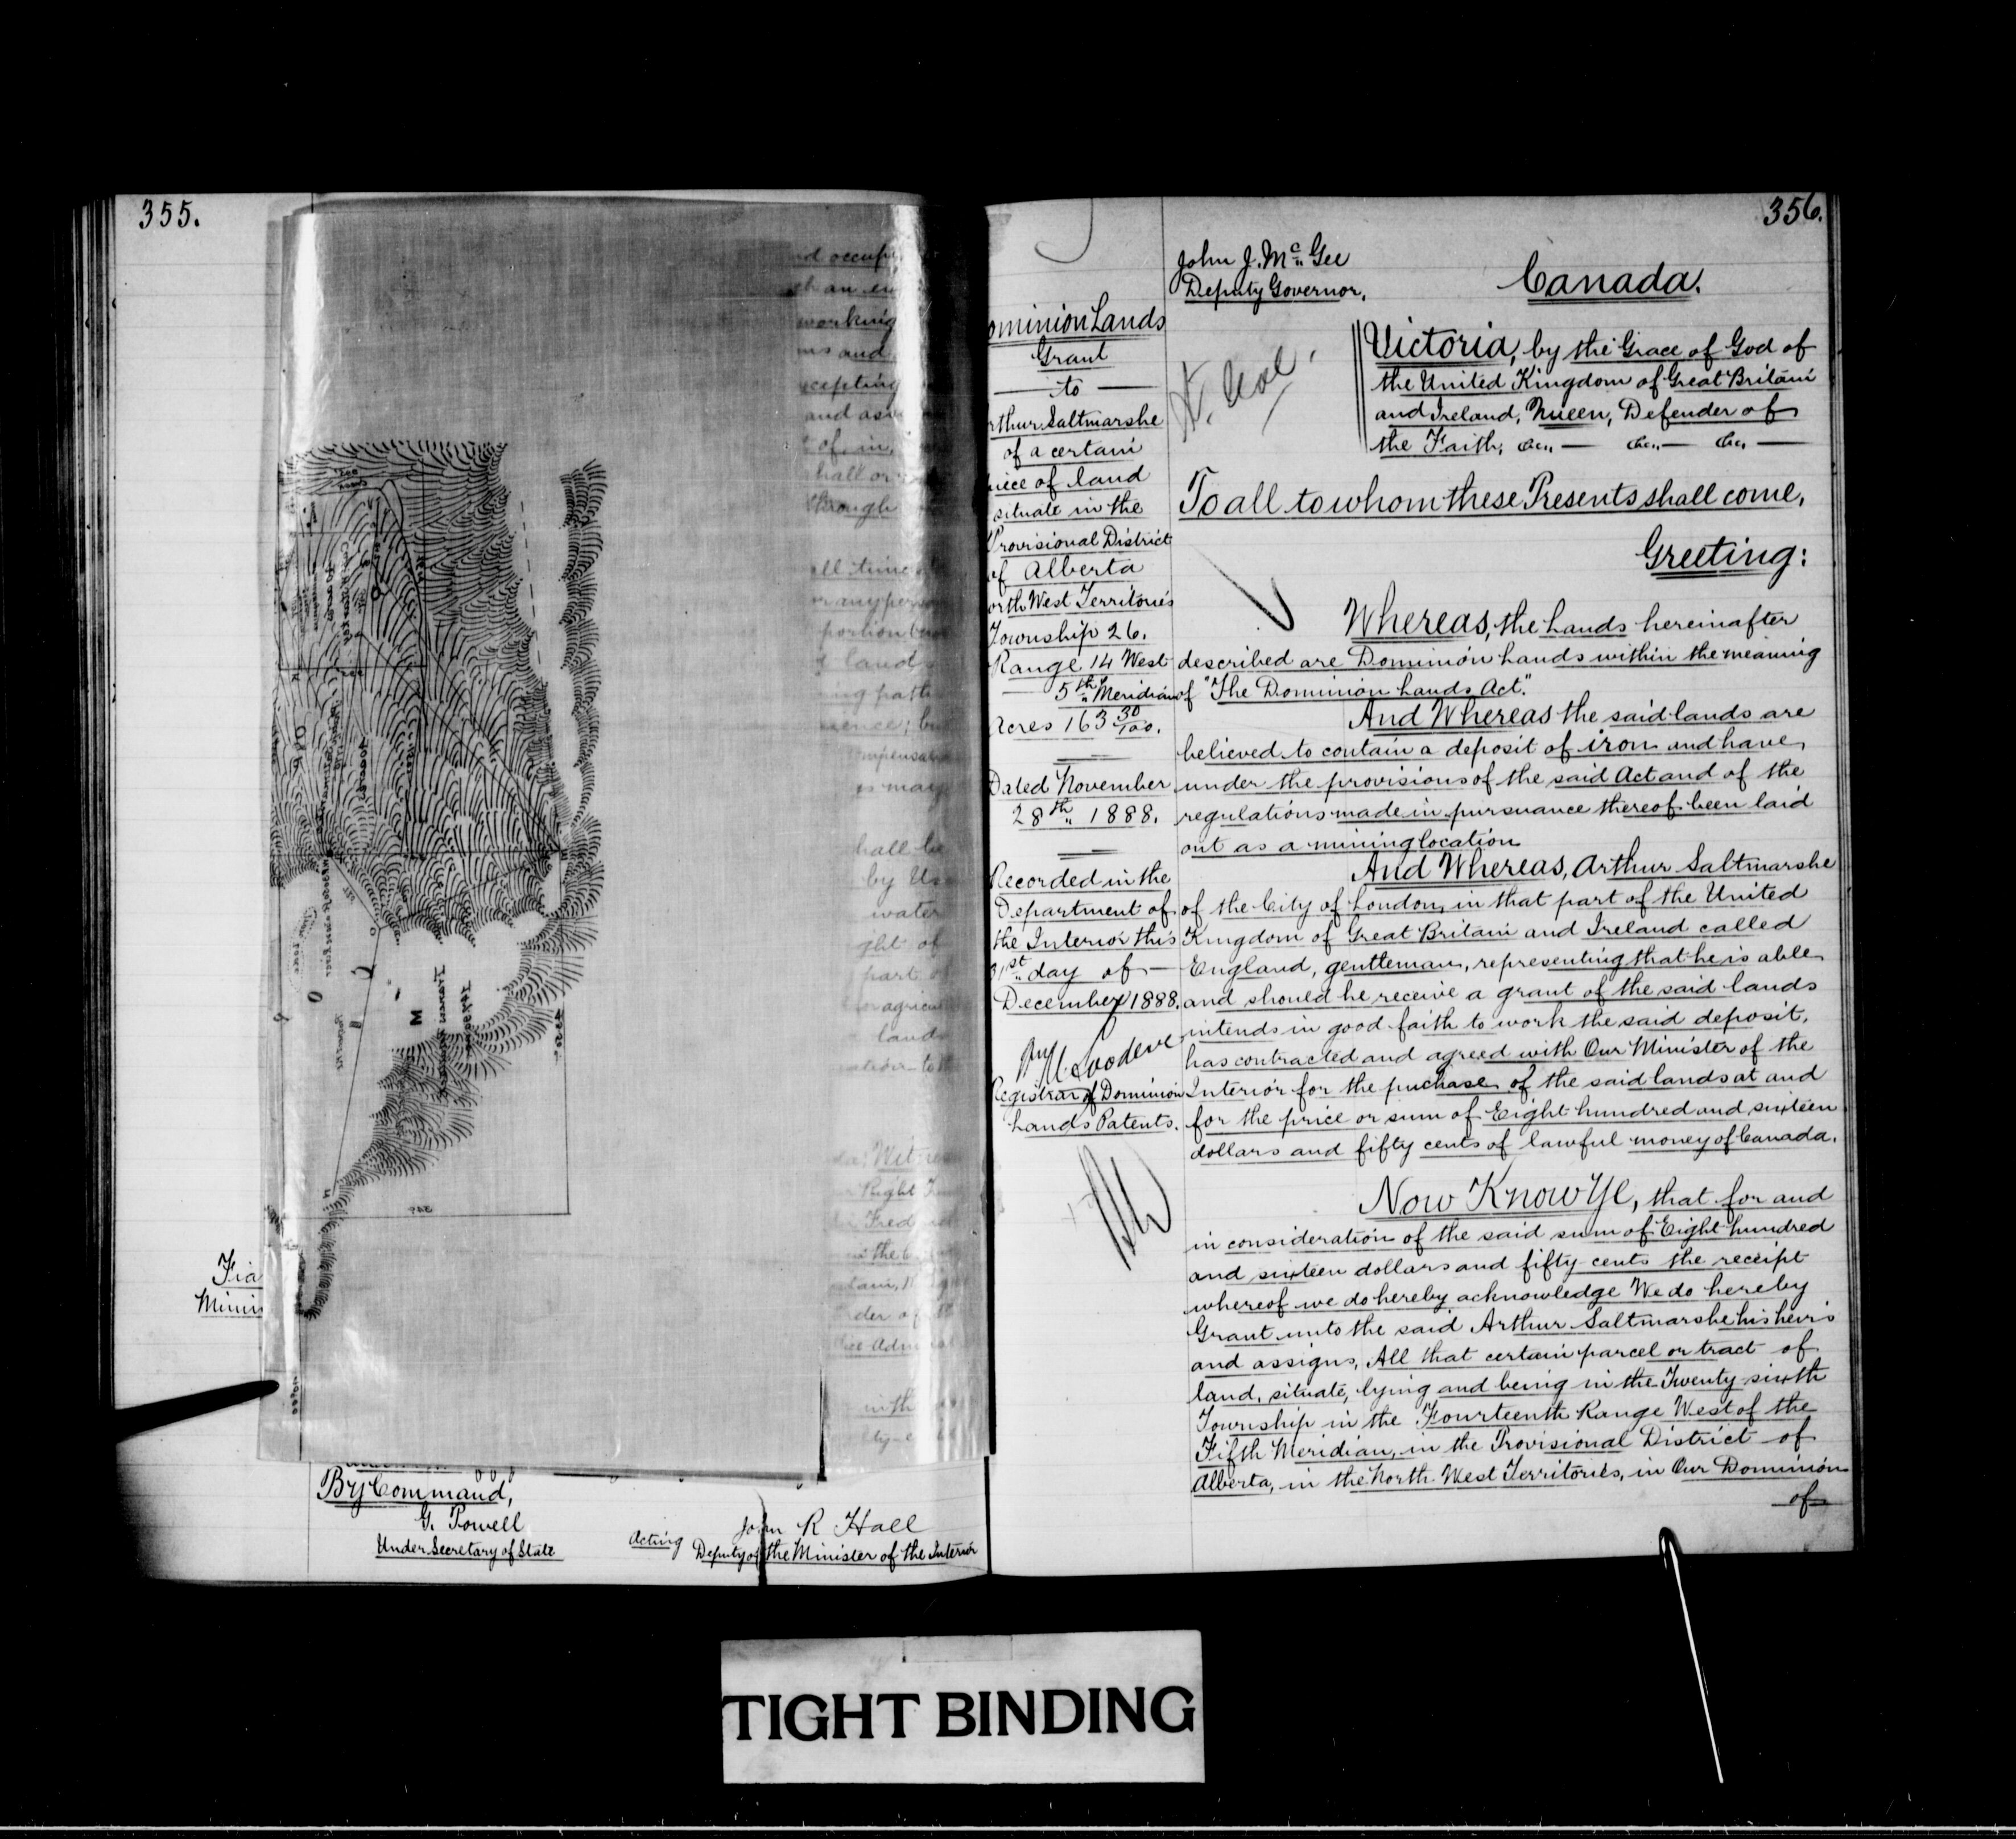 355.
nd occup
ch an en
working
ms and
xcepting
and ass
t of, in,
hall or
through
all time
or any perso
portion
lands
ing path
ience; bu
ompensat
as may
hall be
by Us
water
ght of
part of
or agricu
lands
Wit
Right
Fred
in the
der of
Vice Admiral
with
Fia
Minin
By Command,
G. Powell
Under Secretary of State
John R Hall
Acting Deputy of the Minister of the Interior
356.
John J. McGee
Deputy Governor,
ominion Lands
Grant
to
rthur Saltmarshe
of a certain
piece of land
situate in the
Provisional District
of Alberta
orth West Territories
Township 26.
Range 14 West
5th Meridian
Acres 163 30/100.
Dated November
28th 1888.
Recorded in the
Department of
the Interior this
31st day of
December 1888.
Registrar of Dominion
Lands Patents.
Canada.
Victoria, by the Grace of God of
the United Kingdom of Great Britain
and Ireland, Queen, Defender of
the Faith, &c., — &c., — &c., —
To all to whom these Presents shall come,
Greeting:
Whereas, the Lands hereinafter
described are Dominion Lands within the meaning
of "The Dominion Lands Act".
And Whereas the said lands are
believed to contain a deposit of iron and have,
under the provisions of the said Act and of the
regulations made in pursuance thereof been laid
out as a mining location
And Whereas, Arthur Saltmarshe
of the City of London, in that part of the United
Kingdom of Great Britain and Ireland called
England, gentleman, representing that he is able
and should he receive a grant of the said lands
intends in good faith to work the said deposit,
has contracted and agreed with Our Minister of the
Interior for the purchase of the said lands at and
for the price or sum of Eight hundred and sixteen
dollars and fifty cents of lawful money of Canada.
Now Know Ye, that for and
in consideration of the said sum of Eight hundred
and sixteen dollars and fifty cents the receipt
whereof we do hereby acknowledge We do hereby
Grant unto the said Arthur Saltmarshe his heirs
and assigns, All that certain parcel or tract of
land, situate, lying and being in the Twenty sixth
Township in the Fourteenth Range West of the
Fifth Meridian, in the Provisional District of
Alberta, in the North West Territories, in Our Dominion
of
TIGHT BINDING